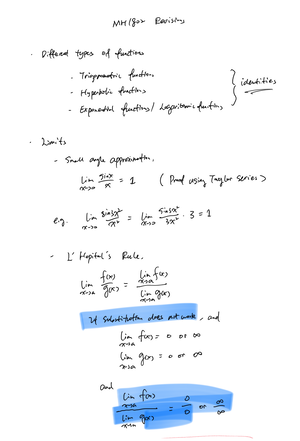 MH1802 Revising
- Different types of functions
- Trigonometric functions
- Hyperbolic functions
- Exponential functions / Logarithmic functions
identities
- Limits
- Small angle approximation,
lim x→0 sinx/x = 1 (Proof using Taylor Series)
e.g. lim x→0 sin3x²/x² = lim x→0 sin3x²/3x² · 3 = 1
- L'Hopital's Rule,
lim x→a f(x)/g(x) = lim x→a f(x) / lim x→a g(x)
If substitution does not work, and
lim x→a f(x) = 0 or ∞
lim x→a g(x) = 0 or ∞
and
lim x→a f(x) / lim x→a g(x) = 0/0 or ∞/∞